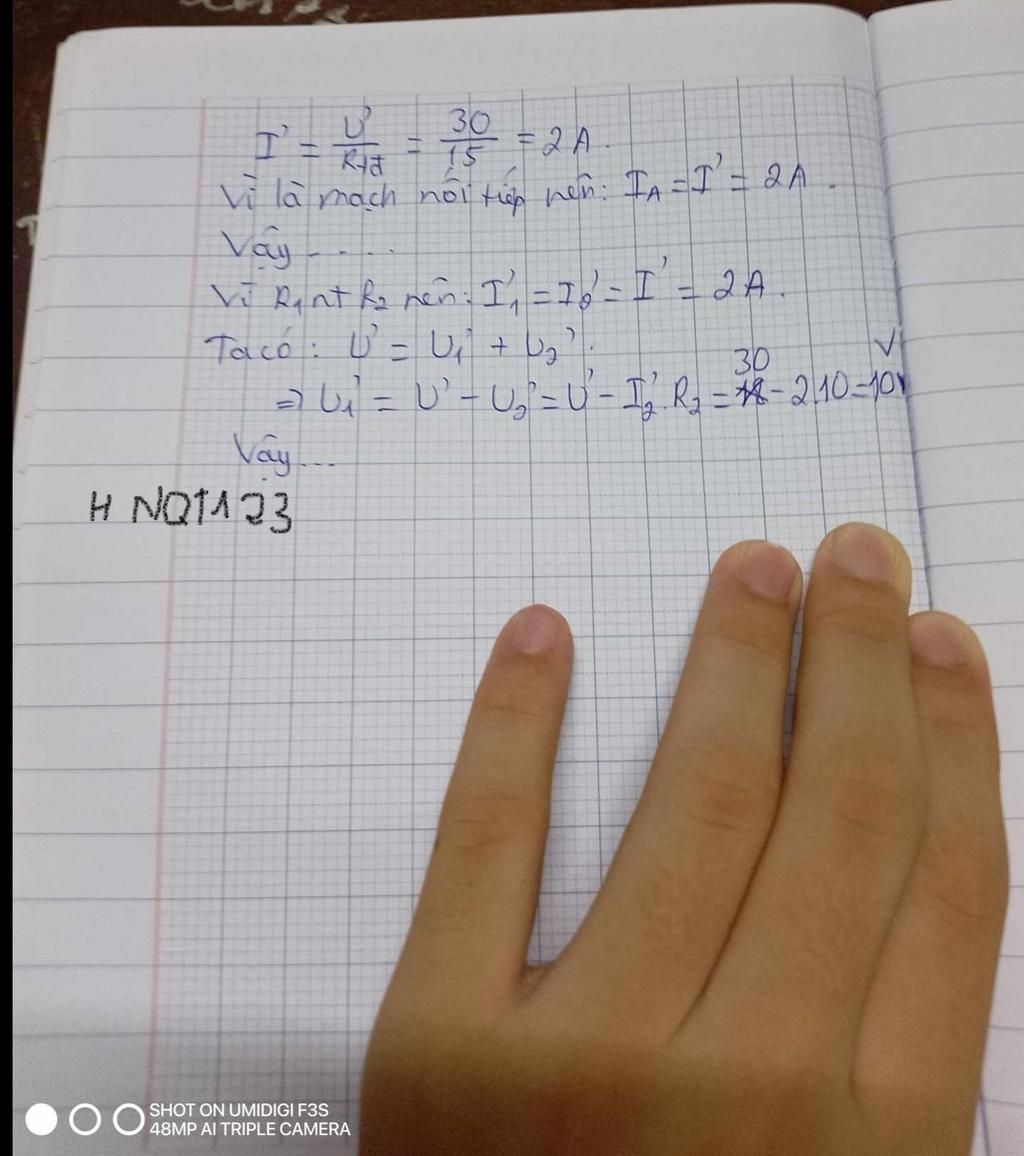 I' = U'/Rtđ = 30/15 = 2A.
Vì là mạch nối tiếp nên: IA = I' = 2A.
Vậy.....
Vì R1 nt R2 nên: I1' = I2' = I' = 2A.
Ta có: U' = U1' + U2'.
⇒ U1' = U' - U2' = U' - I2'.R2 = 30 - 2.10 = 10V
Vậy...
H NQT123
SHOT ON UMIDIGI F3S
48MP AI TRIPLE CAMERA